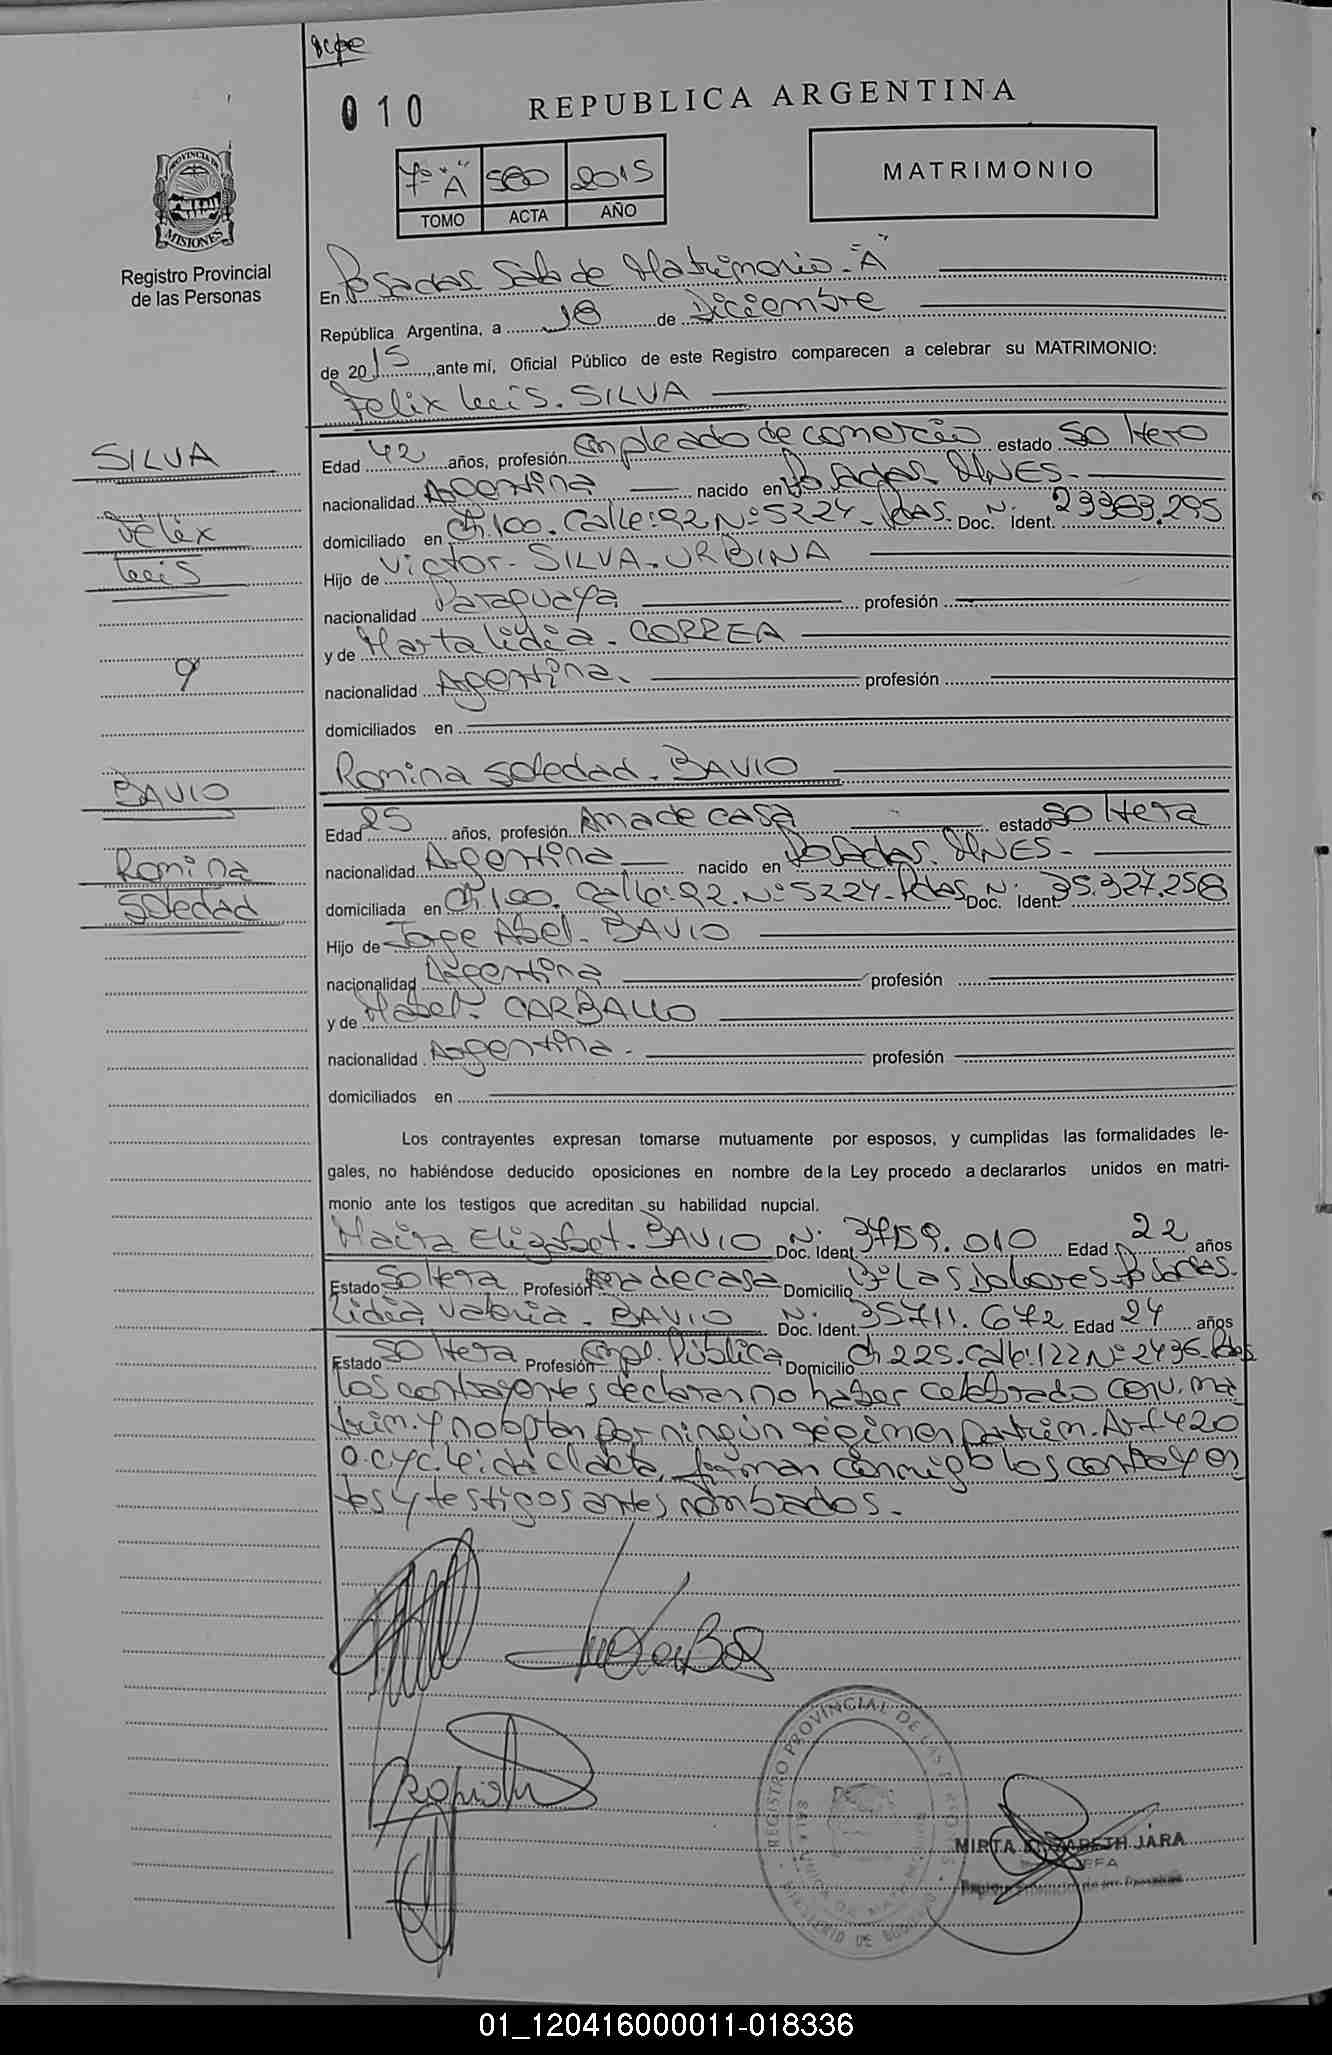 010
REPUBLICA ARGENTINA
7º "A" 580 2015
TOMO ACTA AÑO
MATRIMONIO
PROVINCIA DE MISIONES
Registro Provincial
de las Personas
En Posadas Sala de Matrimonio - "A"
República Argentina, a 18 de Diciembre
de 2015, ante mí, Oficial Público de este Registro comparecen a celebrar su MATRIMONIO:
Felix Luis. SILVA
SILVA
Félix
Luis
y
BAVIO
Romina
Soledad
Edad 42 años, profesión Empleado de comercio estado Soltero
nacionalidad Argentina nacido en Posadas. MNES.
domiciliado en Ch.100. Calle: 92 Nº 5224. Pdas. Doc. N. Ident. 23.383.295
Hijo de Victor. SILVA. URBINA
nacionalidad Paraguaya profesión
y de Marta Lidia. CORREA
nacionalidad Argentina. profesión
domiciliados en
Romina Soledad. BAVIO
Edad 25 años, profesión Ama de casa estado Soltera
nacionalidad Argentina nacido en Posadas. MNES.
domiciliada en Ch.100. Calle: 92. Nº 5224. Pdas Doc. N. Ident. 35.327.258
Hijo de Jorge Abel. BAVIO
nacionalidad Argentina profesión
y de Mabel. CARBALLO
nacionalidad Argentina. profesión
domiciliados en
Los contrayentes expresan tomarse mutuamente por esposos, y cumplidas las formalidades le-
gales, no habiéndose deducido oposiciones en nombre de la Ley procedo a declararlos unidos en matri-
monio ante los testigos que acreditan su habilidad nupcial.
Maira Elizabet. BAVIO Doc. N. Ident. 37.159.010 Edad 22 años
Estado Soltera Profesión Ama de casa Domicilio Bº Las Dolores Posadas.
Lidia Valeria. BAVIO Doc. N. Ident. 35.711.672 Edad 24 años
Estado Soltera Profesión Empl. Pública Domicilio Ch 225. Calle: 122 Nº 2436. Pdas
Los contrayentes declaran no haber celebrado conv. ma
trim. y no optan por ningún régimen patrim. Art 420
C. y C. Leída el acta, firman conmigo los contrayen
tes y testigos antes nombrados.
REGISTRO PROVINCIAL DE LAS PERSONAS
MINISTERIO DE GOBIERNO
MIRTA ELIZABETH JARA
JEFA
Registro Provincial de las Personas
01_120416000011-018336